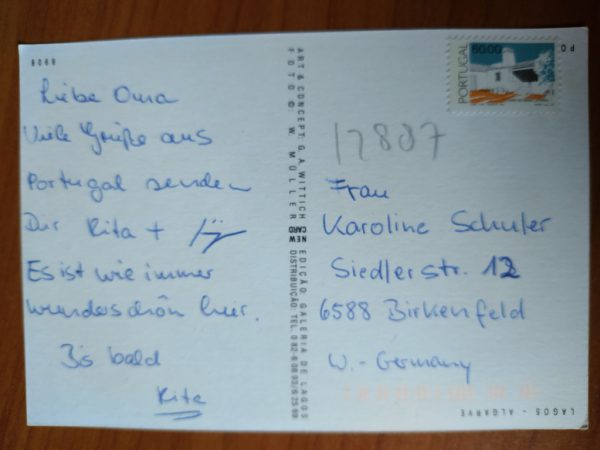 8908
Liebe Oma
Viele Grüße aus
Portugal senden
Dir Rita +
Es ist wie immer
wunderschön hier.
Bis bald
Rita
ART & CONCEPT: G.A. WITTICH NEW EDIÇÃO: GALERIA DE LAGOS
FOTO ©: W. MÜLLER CARD DISTRIBUIÇÃO: TEL. 082-6 08 93/6 25 69
PORTUGAL 60.00
PO
12887
Frau
Karoline Schuler
Siedlerstr. 12
6588 Birkenfeld
W.-Germany
LAGOS - ALGARVE